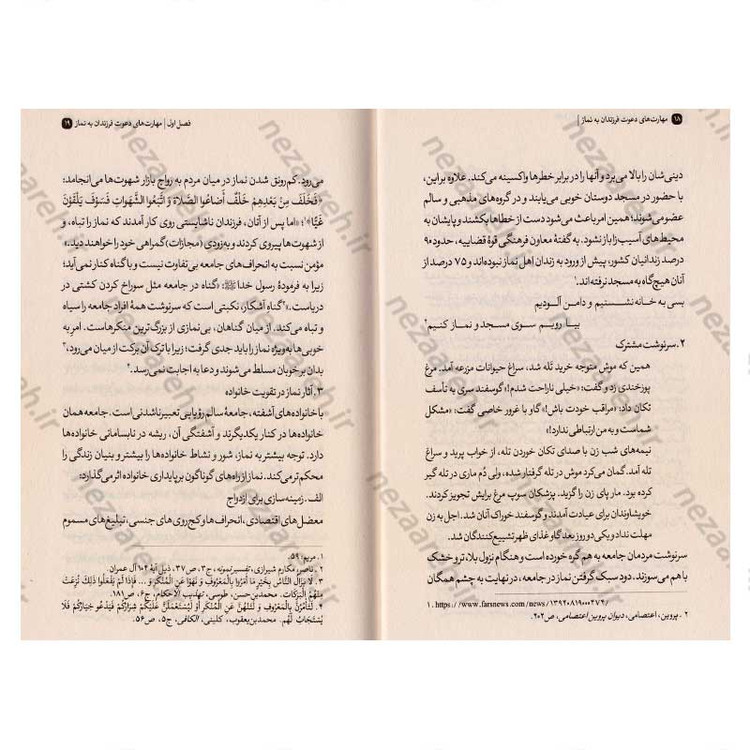 ۱۸ مهارت‌های دعوت فرزندان به نماز |
دینی‌شان را بالا می‌برد و آنها را در برابر خطرها واکسینه می‌کند. علاوه بر این،
با حضور در مسجد دوستان خوبی می‌یابند و در گروه‌های مذهبی و سالم
عضو می‌شوند؛ همین امر باعث می‌شود دست از خطاها بکشند و پایشان به
محیط‌های آسیب‌زا باز نشود. به گفتهٔ معاون فرهنگی قوهٔ قضاییه، حدود ۹۰
درصد زندانیان کشور، پیش از ورود به زندان اهل نماز نبوده‌اند و ۷۵ درصد از
آنان هیچ‌گاه به مسجد نرفته‌اند.¹
بسی به خانه نشستیم و دامن آلودیم
بیا رویم سوی مسجد و نماز کنیم²
۲. سرنوشت مشترک
همین که موش متوجه خرید تَله شد، سراغ حیوانات مزرعه آمد. مرغ
پوزخندی زد و گفت: «خیلی ناراحت شدم!» گوسفند سری به تأسف
تکان داد: «مراقب خودت باش!» گاو با غرور خاصی گفت: «مشکل
شماست و به من ارتباطی ندارد!»
نیمه‌های شب زن با صدای تکان خوردن تله، از خواب پرید و سراغ
تله آمد. گمان می‌کرد موش در تله گرفتار شده، ولی دُم ماری در تله گیر
کرده بود. مار پای زن را گزید. پزشکان سوپ مرغ برایش تجویز کردند.
خویشاوندان برای عیادت آمدند و گوسفند خوراک آنان شد. اجل به زن
مهلت نداد و یکی دو روز بعد گاو غذای ظهر تشییع‌کنندگان شد.
سرنوشت مردمان جامعه به هم گره خورده است و هنگام نزول بلا، تر و خشک
با هم می‌سوزند. دود سبک گرفتن نماز در جامعه، در نهایت به چشم همگان
۱. https://www.farsnews.com/news/۱۳۹۲۰۸۱۹۰۰۰۴۷۴/
۲. پروین، اعتصامی، دیوان پروین اعتصامی، ص۲۰۲.
فصل اول | مهارت‌های دعوت فرزندان به نماز ۱۹
می‌رود. کم‌رونق شدن نماز در میان مردم به رواج بازار شهوت‌ها می‌انجامد:
«فَخَلَفَ مِن بَعْدِهِمْ خَلْفٌ أَضَاعُوا الصَّلَاةَ وَ اتَّبَعُوا الشَّهَوَاتِ فَسَوْفَ يَلْقَوْنَ
غَيًّا»¹؛ «اما پس از آنان، فرزندان ناشایستی روی کار آمدند که نماز را تباه، و
از شهوت‌ها پیروی کردند و به‌زودی (مجازات) گمراهی خود را خواهند دید.»
مؤمن نسبت به انحراف‌های جامعه بی‌تفاوت نیست و با گناه کنار نمی‌آید؛
زیرا به فرمودهٔ رسول خدا ﷺ: «گناه در جامعه مثل سوراخ کردن کشتی در
دریاست.»² گناهِ آشکار، نکبتی است که سرنوشت همهٔ افراد جامعه را سیاه
و تباه می‌کند. از میان گناهان، بی‌نمازی از بزرگ‌ترین منکرهاست. امر به
خوبی‌ها به‌ویژه نماز را باید جدی گرفت؛ زیرا با ترک آن برکت از میان می‌رود،³
بدان بر خوبان مسلط می‌شوند و دعا به اجابت نمی‌رسد.⁴
۳. آثار نماز در تقویت خانواده
با خانواده‌های آشفته، جامعهٔ سالم رؤیایی تعبیرناشدنی است. جامعه همان
خانواده‌ها در کنار یکدیگرند و آشفتگی آن، ریشه در نابسامانی خانواده‌ها
دارد. توجه بیشتر به نماز، شور و نشاط خانواده‌ها را بیشتر و بنیان زندگی را
محکم‌تر می‌کند. نماز از راه‌های گوناگون بر پایداری خانواده اثر می‌گذارد:
الف. زمینه‌سازی برای ازدواج
معضل‌های اقتصادی، انحراف‌ها و کج‌روی‌های جنسی، تبلیغ‌های مسموم
۱. مریم: ۵۹.
۲. ناصر، مکارم شیرازی، تفسیر نمونه، ج۳، ص۳۷، ذیل آیهٔ ۱۰۴ آل عمران.
۳. لَا يَزَالُ النَّاسُ بِخَيْرٍ مَا أَمَرُوا بِالْمَعْرُوفِ وَ نَهَوْا عَنِ الْمُنْكَرِ وَ ... فَإِذَا لَمْ يَفْعَلُوا ذَلِكَ نُزِعَتْ
مِنْهُمُ الْبَرَكَاتُ. محمدبن‌حسن، طوسی، تهذیب الأحکام، ج۶، ص۱۸۱.
۴. لَتَأْمُرُنَّ بِالْمَعْرُوفِ وَ لَتَنْهُنَّ عَنِ الْمُنْكَرِ أَوْ لَيُسْتَعْمَلَنَّ عَلَيْكُمْ شِرَارُكُمْ فَيَدْعُو خِيَارُكُمْ فَلَا
يُسْتَجَابُ لَهُمْ. محمدبن‌یعقوب، کلینی، الکافی، ج۵، ص۵۶.
nezaareh.ir